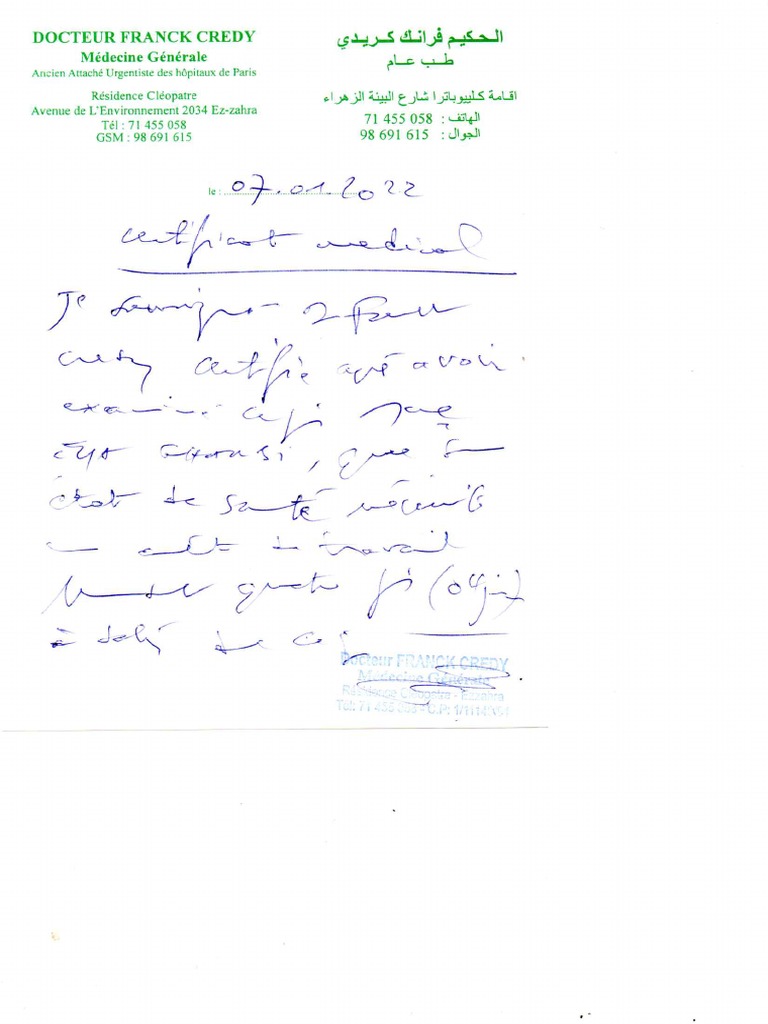 DOCTEUR FRANCK CREDY
Médecine Générale
Ancien Attaché Urgentiste des hôpitaux de Paris
Résidence Cléopatre
Avenue de L'Environnement 2034 Ez-zahra
Tél : 71 455 058
GSM : 98 691 615
الحكيم فرانك كريدي
طب عام
اقامة كليوباترا شارع البيئة الزهراء
الهاتف : 058 455 71
الجوال : 615 691 98
le : 07.01.2022
certificat medical
Je soussigné
Credy certifie après avoir
examiné ce jour
que son
état de santé nécessite
un arrêt de travail
quatre jours (04 jours)
à dater de ce jour
Docteur FRANCK CREDY
Médecine Générale
Résidence Cléopatre - Ezzahra
Tél: 71 455 058 - C.P: